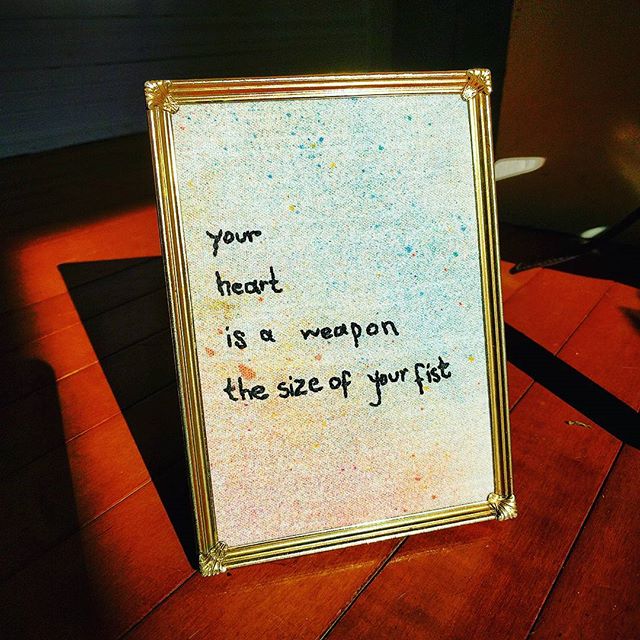 your
heart
is a weapon
the size of your fist